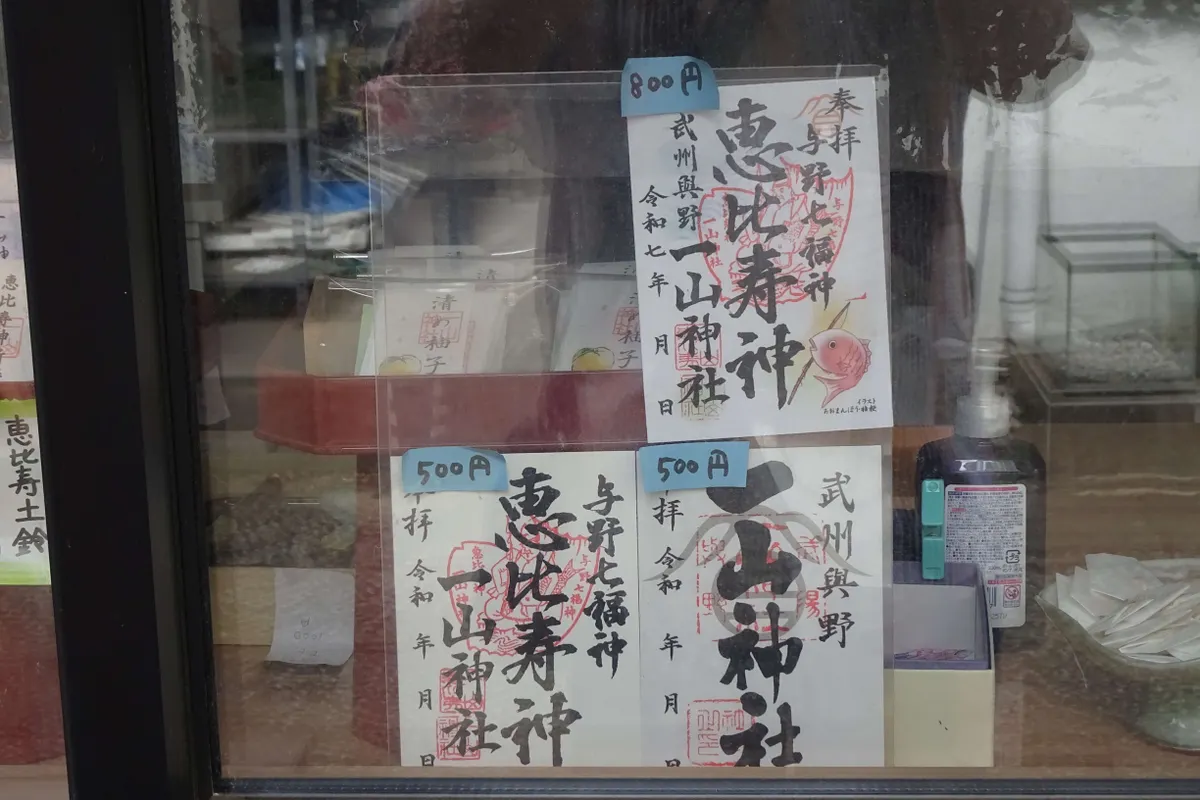 800円
奉拝
与野七福神
恵比寿神
武州與野
一山神社
令和七年 月 日
500円
与野七福神
恵比寿神
一山神社
拝
令和 年 月 日
500円
武州與野
一山神社
拝
令和 年 月 日
清め柚子
恵比寿土鈴